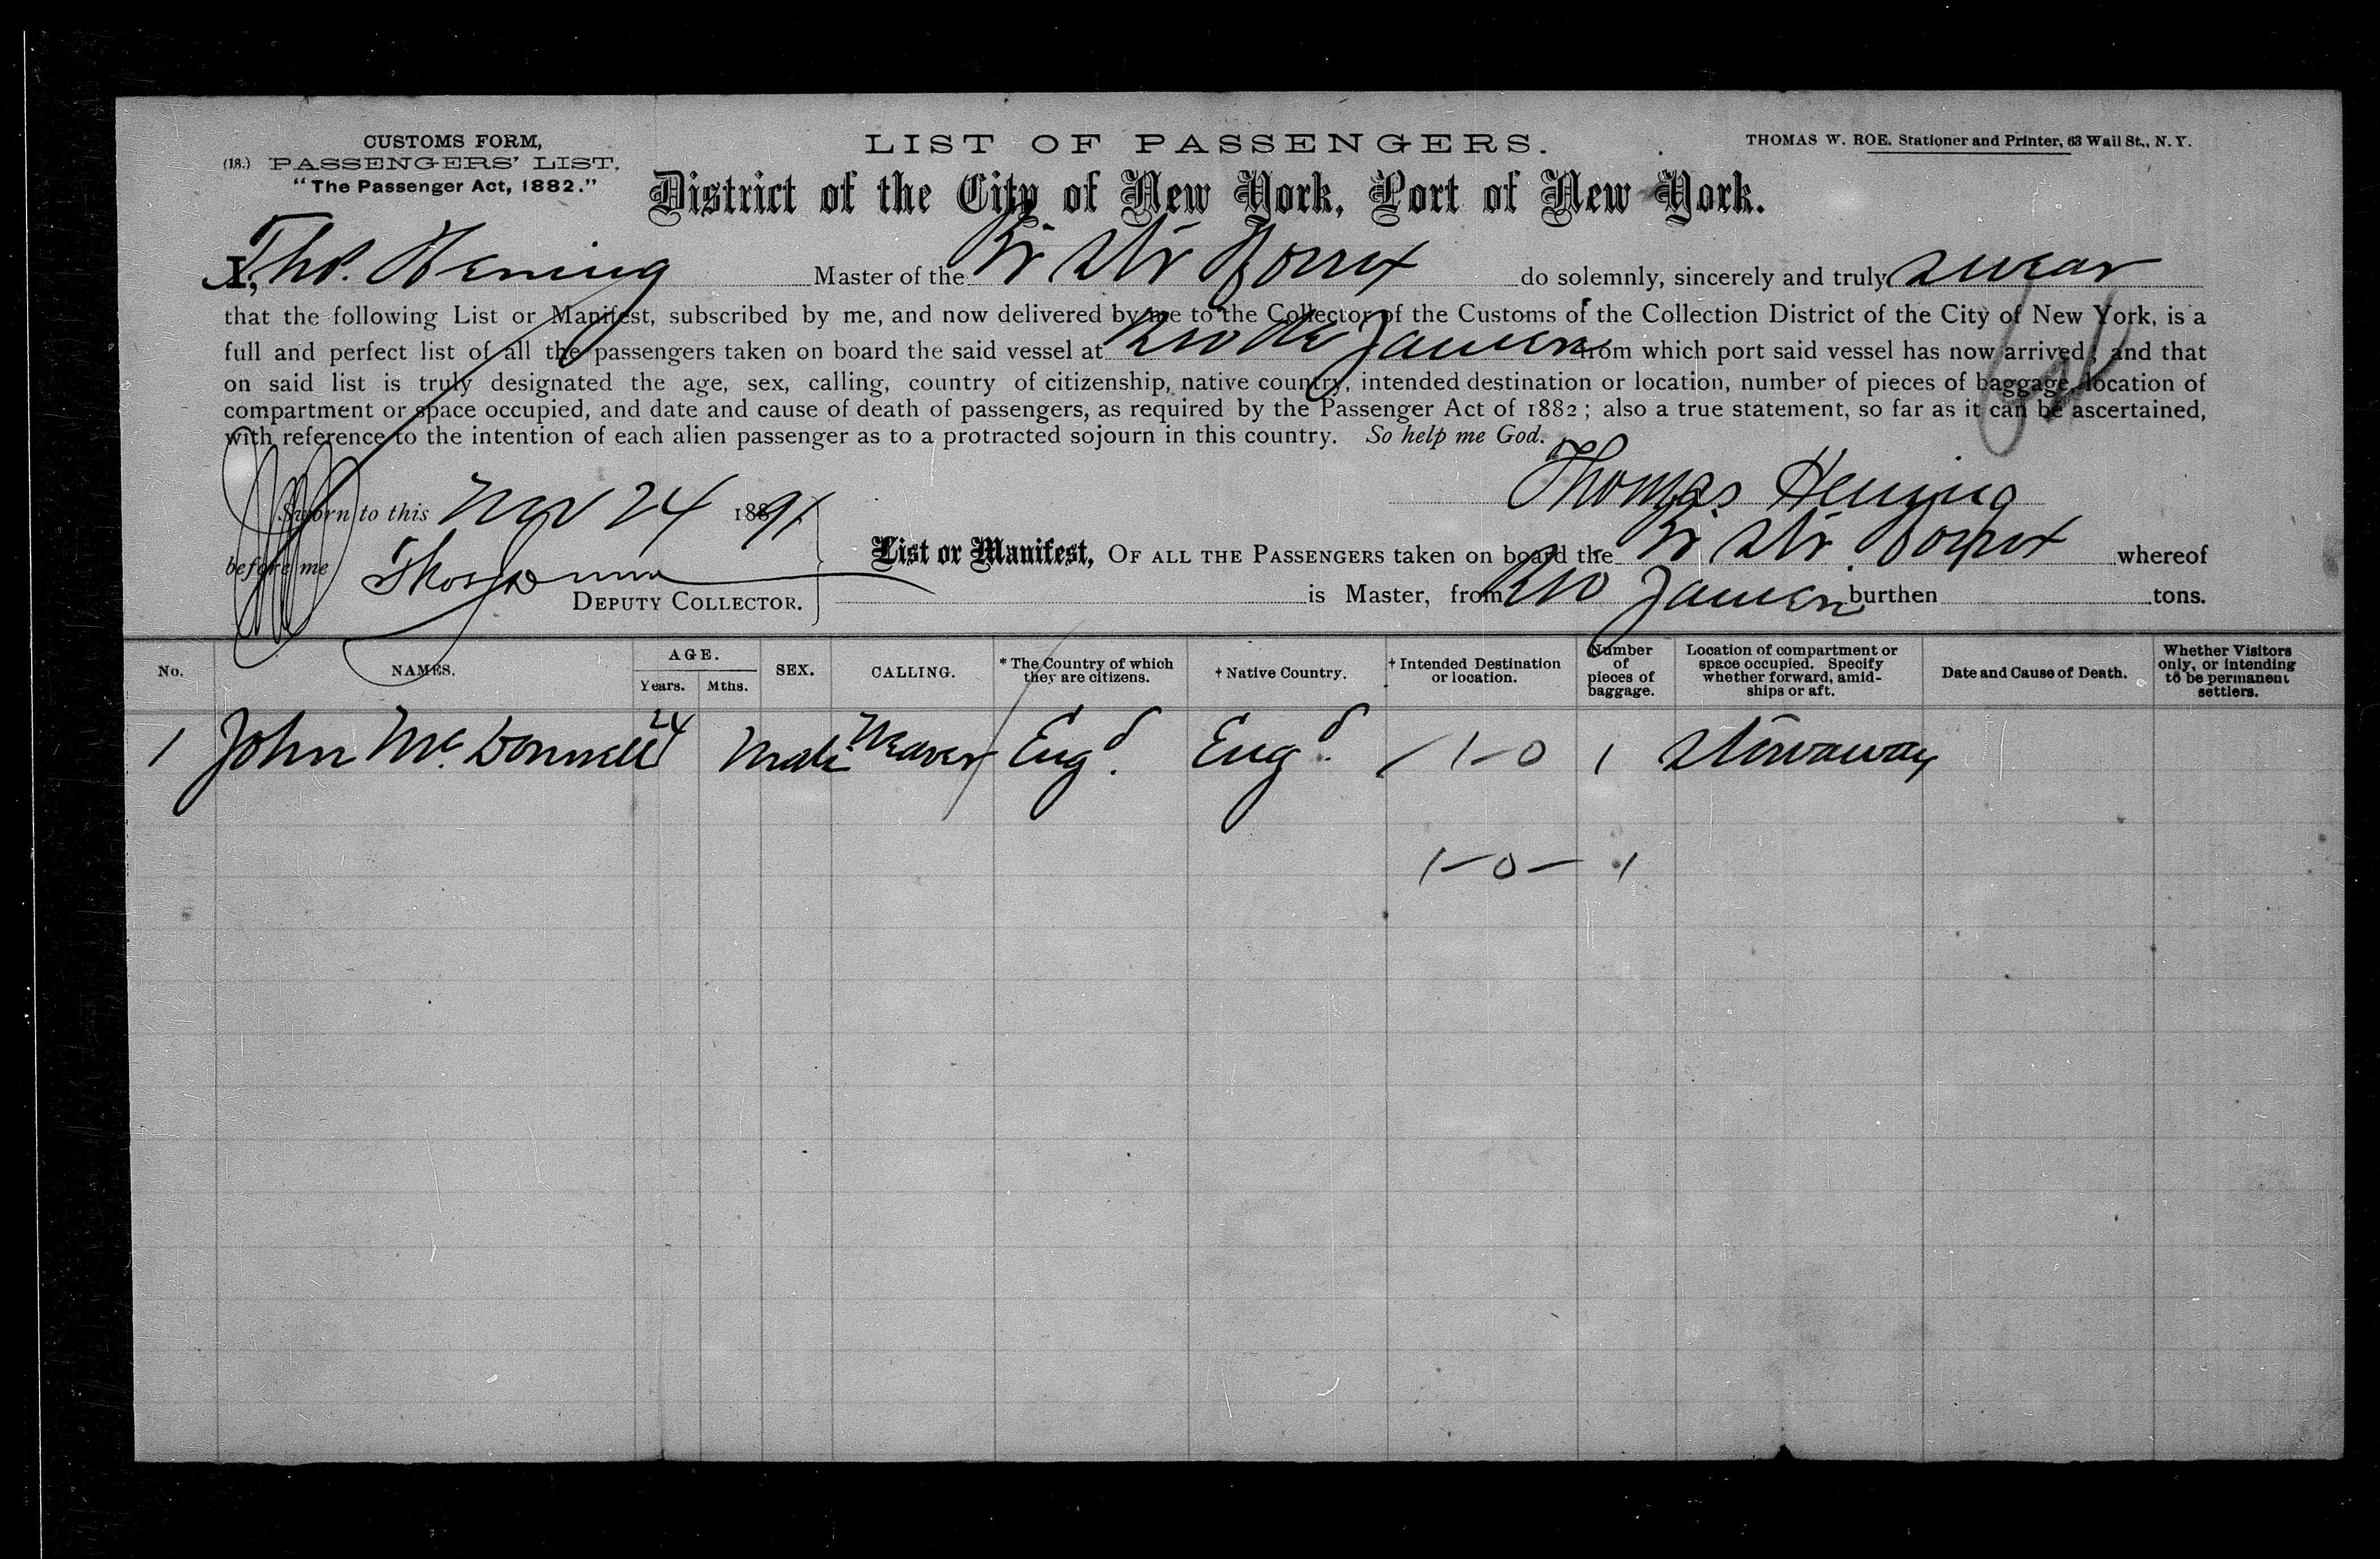 CUSTOMS FORM,
(18.) PASSENGERS' LIST,
"The Passenger Act, 1882."
LIST OF PASSENGERS.
THOMAS W. ROE. Stationer and Printer, 63 Wall St., N. Y.
District of the City of New York, Port of New York.
I, Thos. Hening Master of the Br Str do solemnly, sincerely and truly swear
that the following List or Manifest, subscribed by me, and now delivered by me to the Collector of the Customs of the Collection District of the City of New York, is a
full and perfect list of all the passengers taken on board the said vessel at Rio de Janeiro from which port said vessel has now arrived; and that
on said list is truly designated the age, sex, calling, country of citizenship, native country, intended destination or location, number of pieces of baggage, location of
compartment or space occupied, and date and cause of death of passengers, as required by the Passenger Act of 1882; also a true statement, so far as it can be ascertained,
with reference to the intention of each alien passenger as to a protracted sojourn in this country. So help me God.
Thomas Hening
Sworn to this 24 188 91
before me Thos Dunn
DEPUTY COLLECTOR.
List or Manifest, OF ALL THE PASSENGERS taken on board the Br Str whereof
is Master, from Rio Janeiro burthen tons.
No. NAMES. AGE. Years. Mths. SEX. CALLING. * The Country of which they are citizens. † Native Country. † Intended Destination or location. Number of pieces of baggage. Location of compartment or space occupied. Specify whether forward, amidships or aft. Date and Cause of Death. Whether Visitors only, or intending to be permanent settlers.
1 John McDonnell 24 Male Weaver Engd. Engd. / 1-0 1 Stowaway
1-0- 1